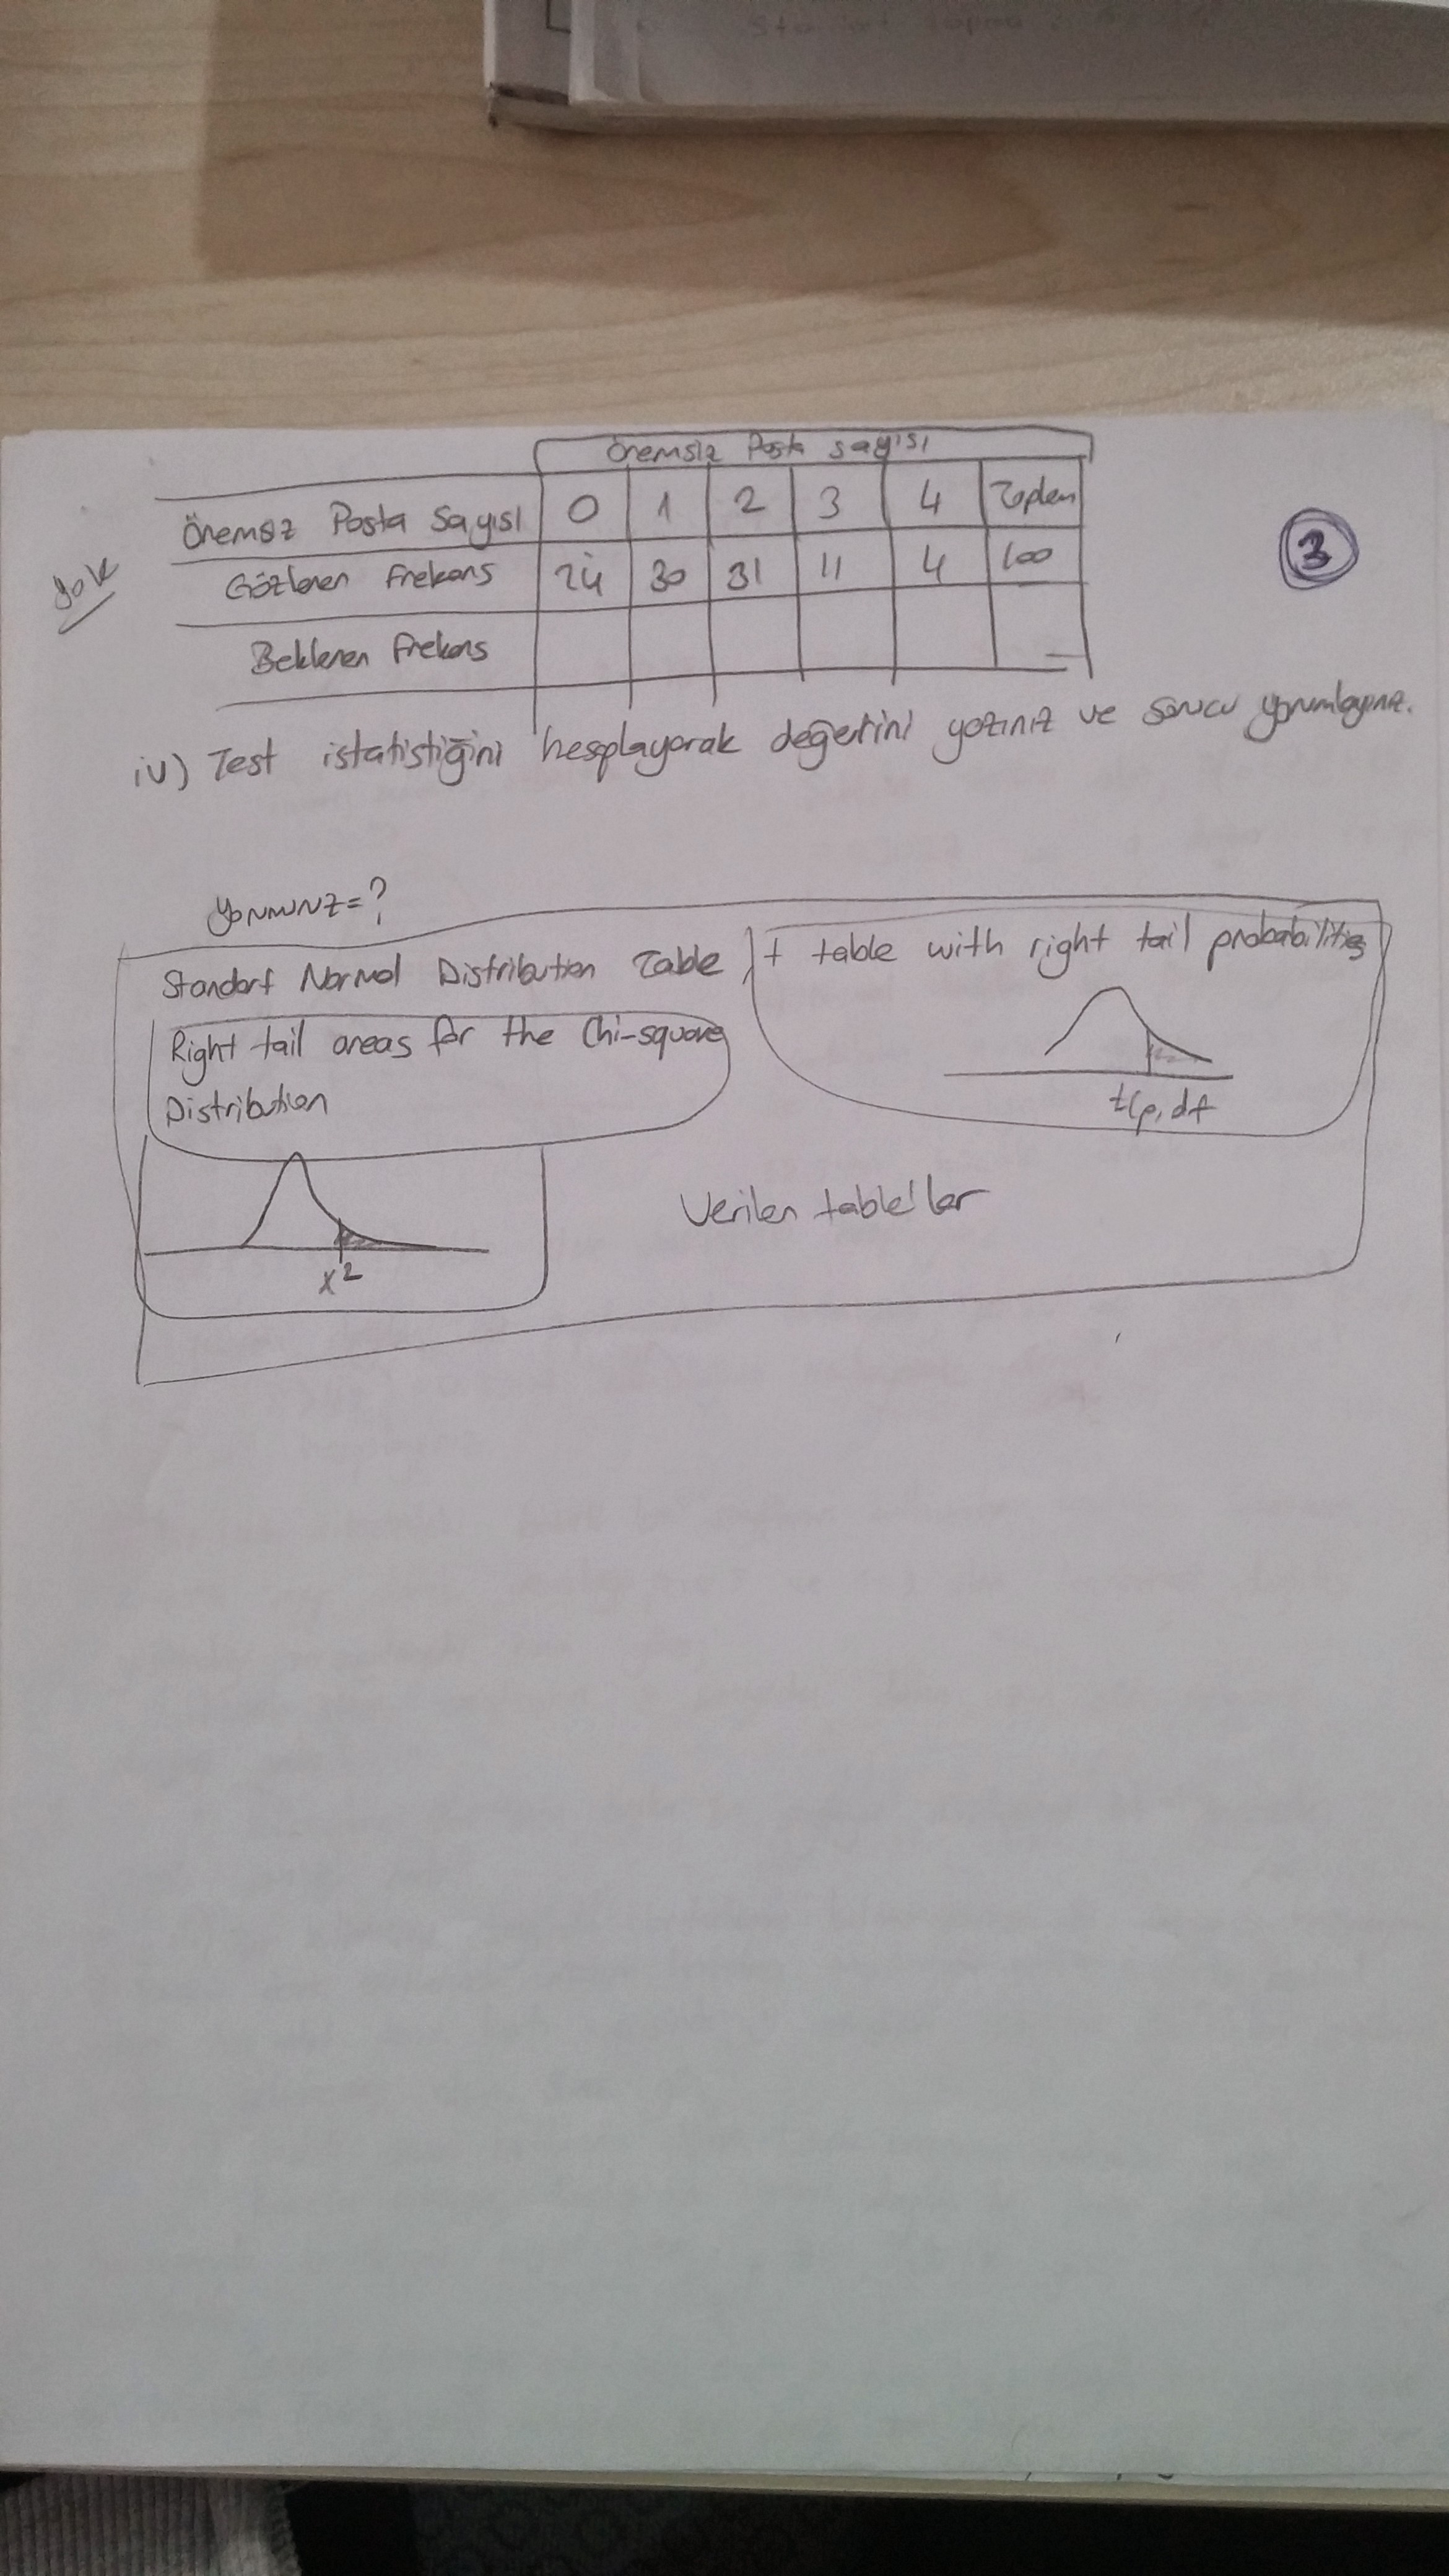 Önemsiz Posta sayısı
Önemsiz Posta Sayısı 0 1 2 3 4 Toplam
Gözlenen Frekans 24 30 31 11 4 100
Beklenen Frekans
3
iv) Test istatistiğini hesplayarak değerini yazınız ve sonucu yorumlayınız.
yorumunuz=?
Standart Normal Distribution Table
t table with right tail probabilities
Right tail areas for the Chi-square
Distribution
t(p, df
x²
Verilen table'lar